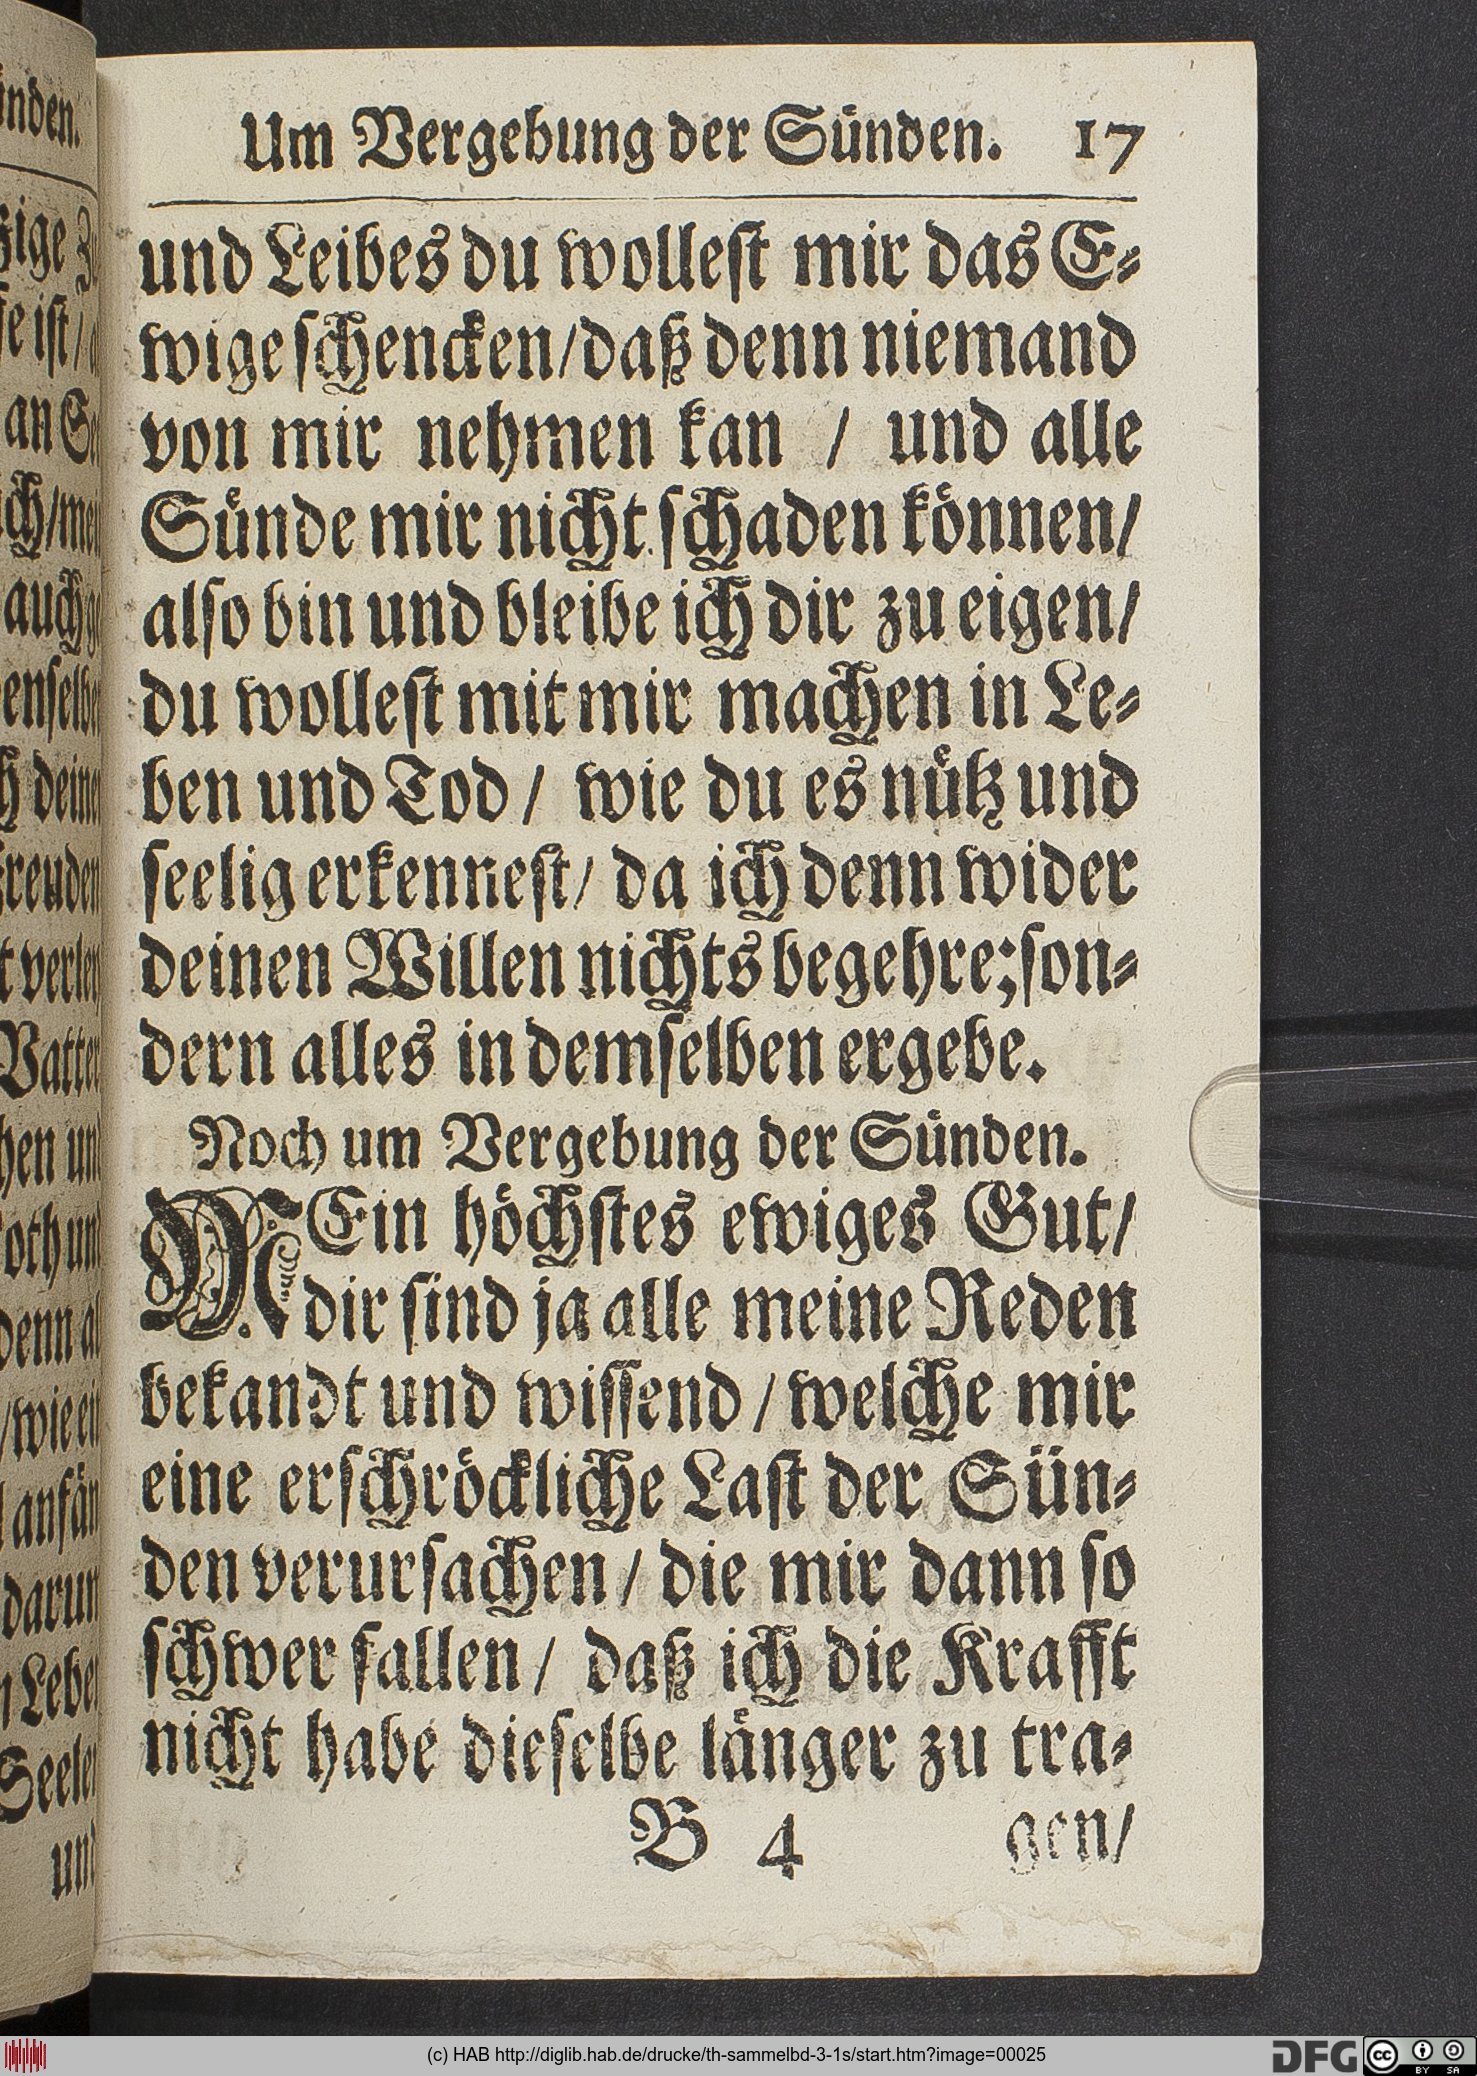 Um Vergebung der Sünden. 17
und Leibes du wollest mir das E-
wige schencken/daß denn niemand
von mir nehmen kan / und alle
Sünde mir nicht schaden können/
also bin und bleibe ich dir zu eigen/
du wollest mit mir machen in Le-
ben und Tod / wie du es nütz und
seelig erkennest/ da ich denn wider
deinen Willen nichts begehre; son-
dern alles in demselben ergebe.
Noch um Vergebung der Sünden.
MEin höchstes ewiges Gut/
dir sind ja alle meine Reden
bekandt und wissend / welche mir
eine erschröckliche Last der Sün-
den verursachen / die mir dann so
schwer fallen / daß ich die Krafft
nicht habe dieselbe länger zu tra-
B 4 gen/
(c) HAB http://diglib.hab.de/drucke/th-sammelbd-3-1s/start.htm?image=00025
DFG cc BY SA